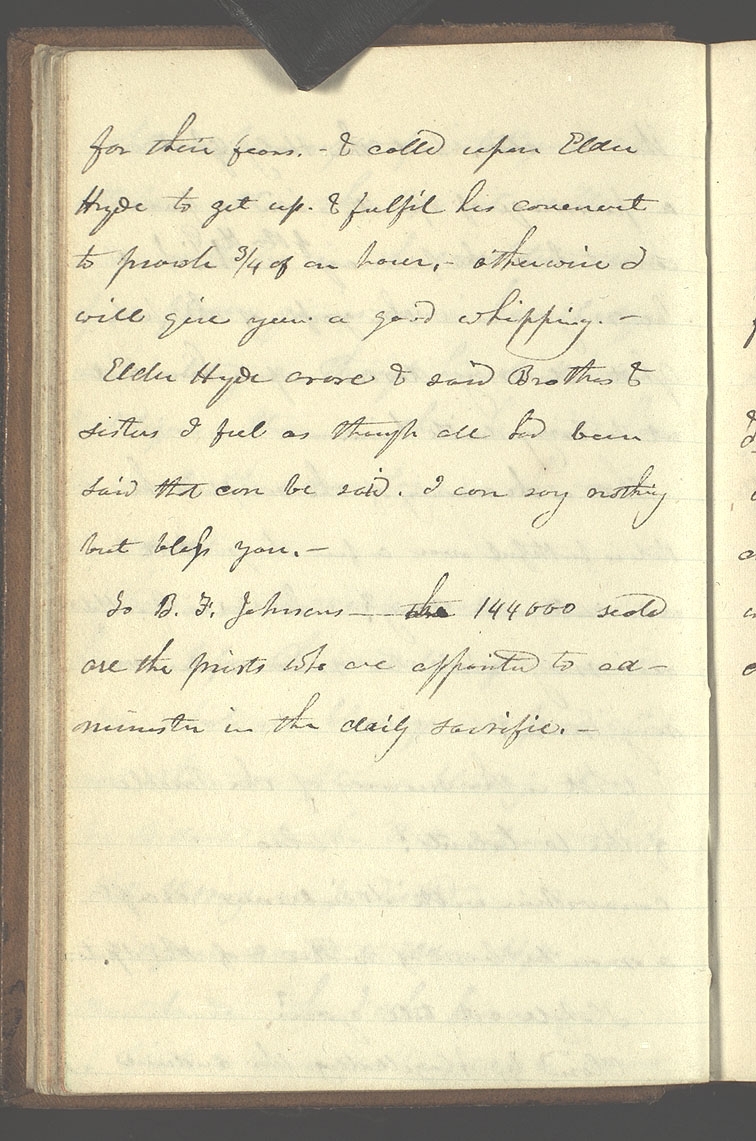 for their fears. - & calld upon Elder
Hyde to get up. & fulfil his covenant
to preach 3/4 of an hour, - otherwise I
will give you a good whipping. -
Elder Hyde arose & said Brothers &
sisters I feel as though all had been
said that can be said. I can say nothing
but bless you. -
To B. F. Johnsons - the 144000 seald
are the priests who are appointed to ad-
minister in the daily sacrifice. -